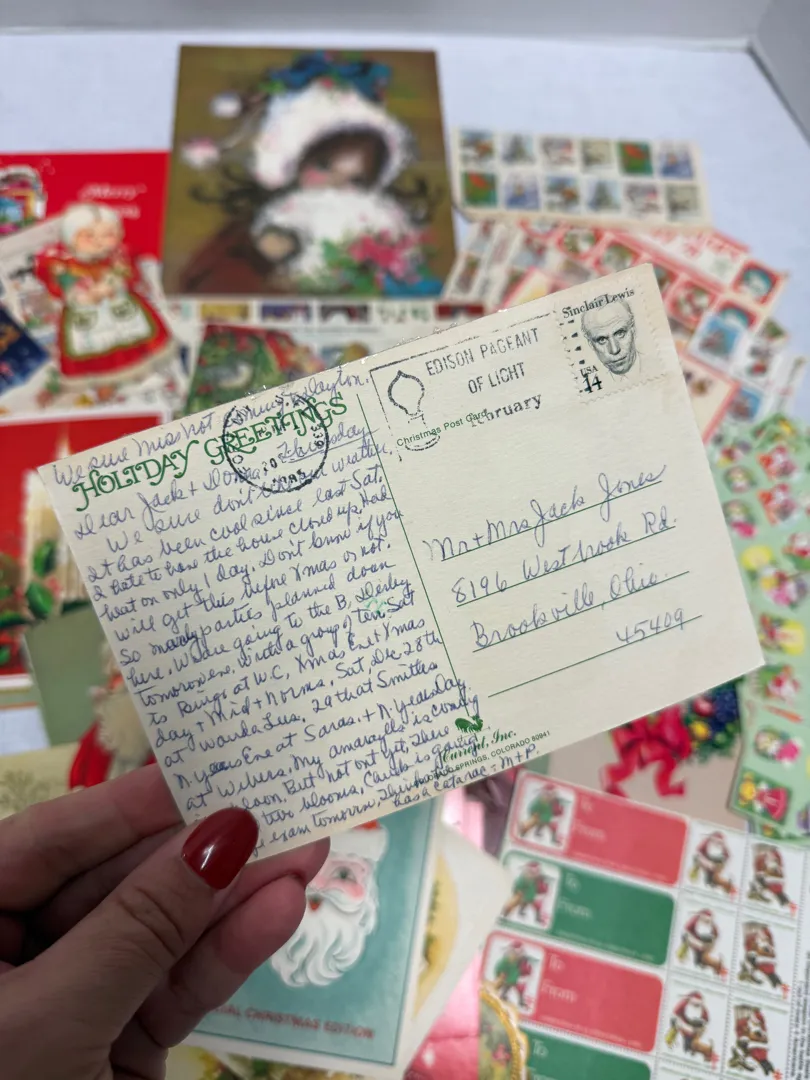 Merry
We sure miss not Dayton.
HOLIDAY GREETINGS
Thursday
Dear Jack + Donna
We sure don't weather
It has been cool since last Sat.
I hate to have the house closed up. Had
heat on only 1 day. Don't know if you
will get this before Xmas or not.
So many parties planned down
here. We are going to the B. Derby
tomorow eve. with a group of ten. Sat
to Rings at W.C, Xmas Eve + Xmas
day + Mid + Norms, Sat. Dec 28th
at Wanda Lus, 29 that Smiths
N years Eve at Saras. + N. Years Day
at Wilmas, My amaryllis is coming
in bloom, But not out yet, There
two blooms, Carl is going
eye exam tomorow,
has a catarac = M + P.
20
1985
EDISON PAGEANT
OF LIGHT
February
Christmas Post Card
Sinclair Lewis
USA
14
Mr + Mrs Jack Jones
8196 Westbrook Rd.
Brookville, Ohio.
45409
Current, Inc.
SPRINGS, COLORADO 80941
CHRISTMAS EDITION
To
From
To
From
To
From
To